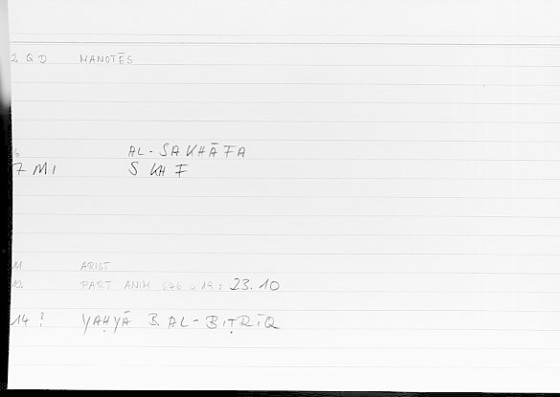 2 Q D MANOTĒS
6 AL-SAKHĀFA
7 M1 S KH F
11 ARIST
12 PART ANIM 676 a 18: 23.10
14 ? YAḤYĀ B. AL-BIṬRĪQ